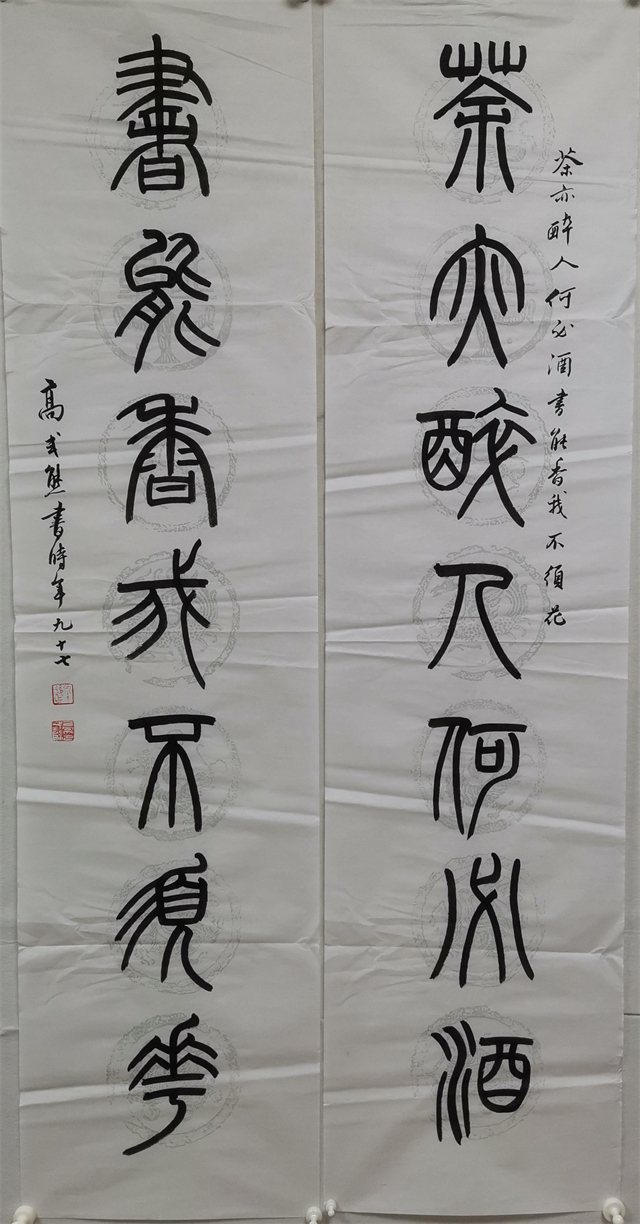 茶亦醉人何必酒书能香我不须花
荼亦醉人何必酒
書能香我不須華
高式熊書時年九十七